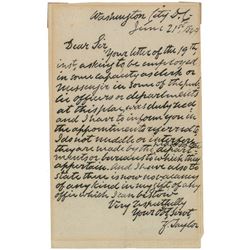 Washington City D.C.
June 21st
Dear Sir,
Your letter of the 19th
inst. asking to be employed
in some capacity as clerk or
Messenger in some of the pub-
lic offices or departments
at this place, was duly rec'd
and I have to inform you in
the appointments referred to
I do not meddle or interfere
they are made by the depart-
ments or bureaus to which they
appertain. And I have also to
state there is now no vacancy
of any kind in my gift of any
office which I can bestow
Very respectfully
Your Obt Servt
Z. Taylor